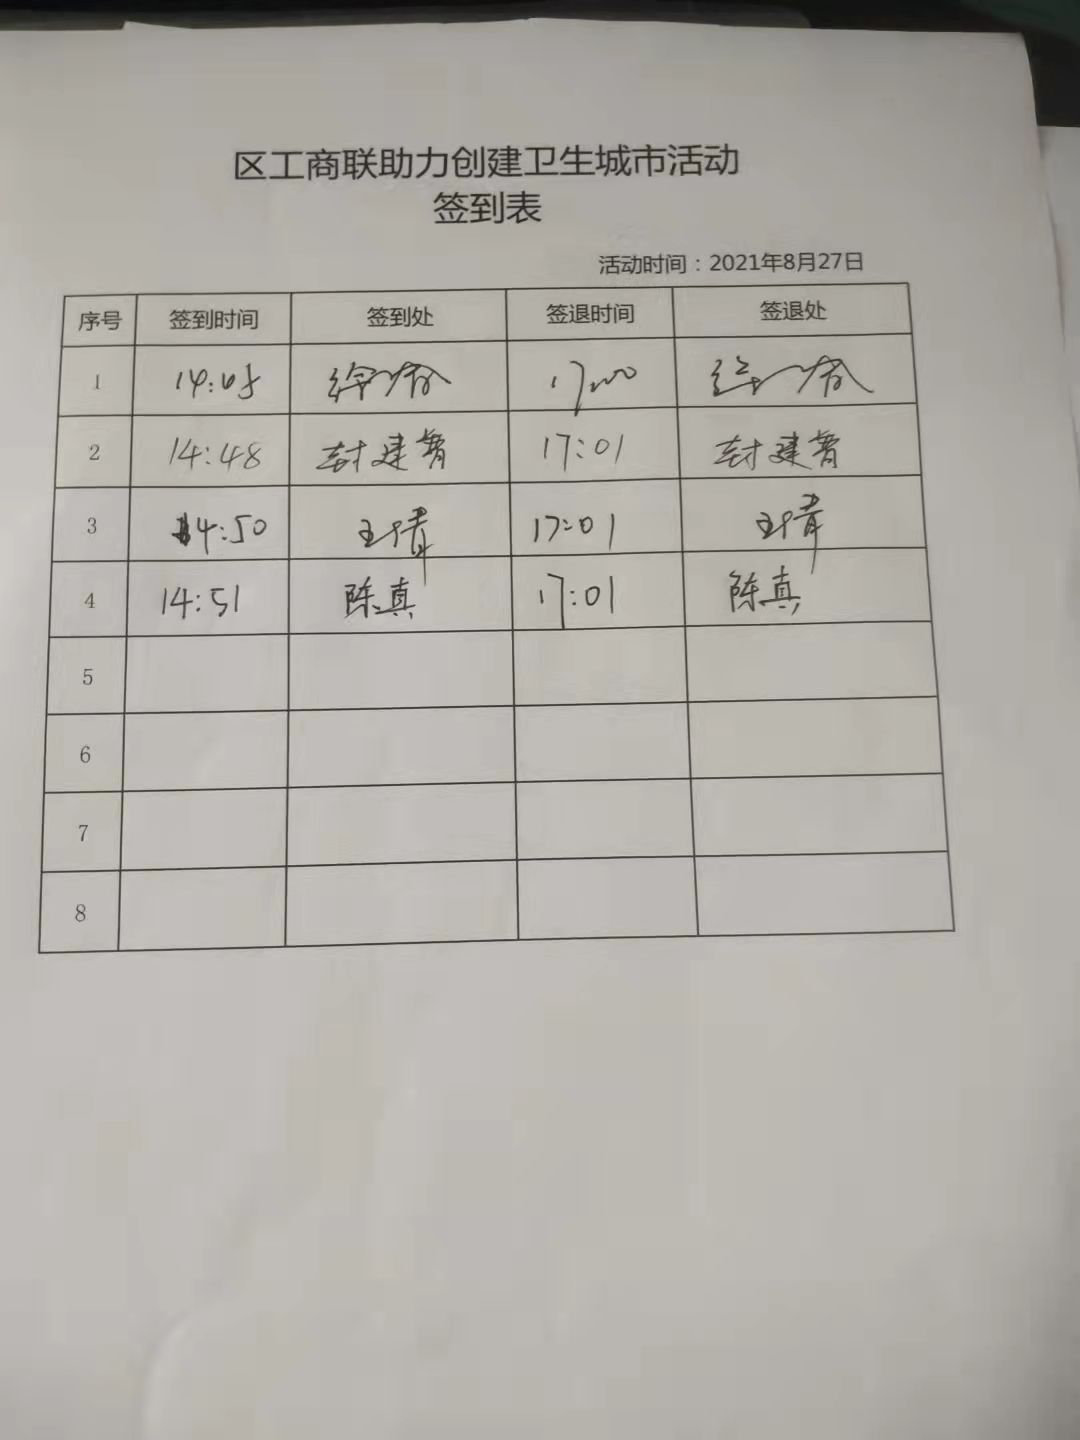 区工商联助力创建卫生城市活动
签到表
活动时间：2021年8月27日
序号 签到时间 签到处 签退时间 签退处
1 14:05 17:00
2 14:48 封建鲁 17:01 封建鲁
3 14:50 王倩 17:01 王倩
4 14:51 陈真 17:01 陈真
5
6
7
8